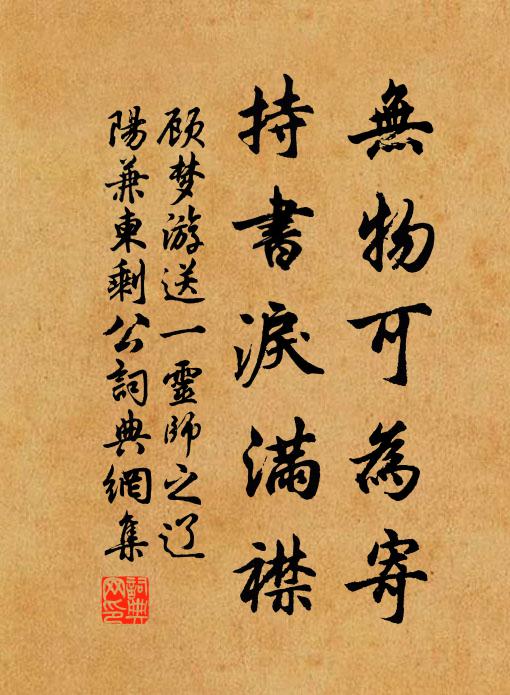 無物可為寄
持書淚滿襟
顾梦游送一靈師之辽
陽兼柬剩公詞典網集
詞典網印